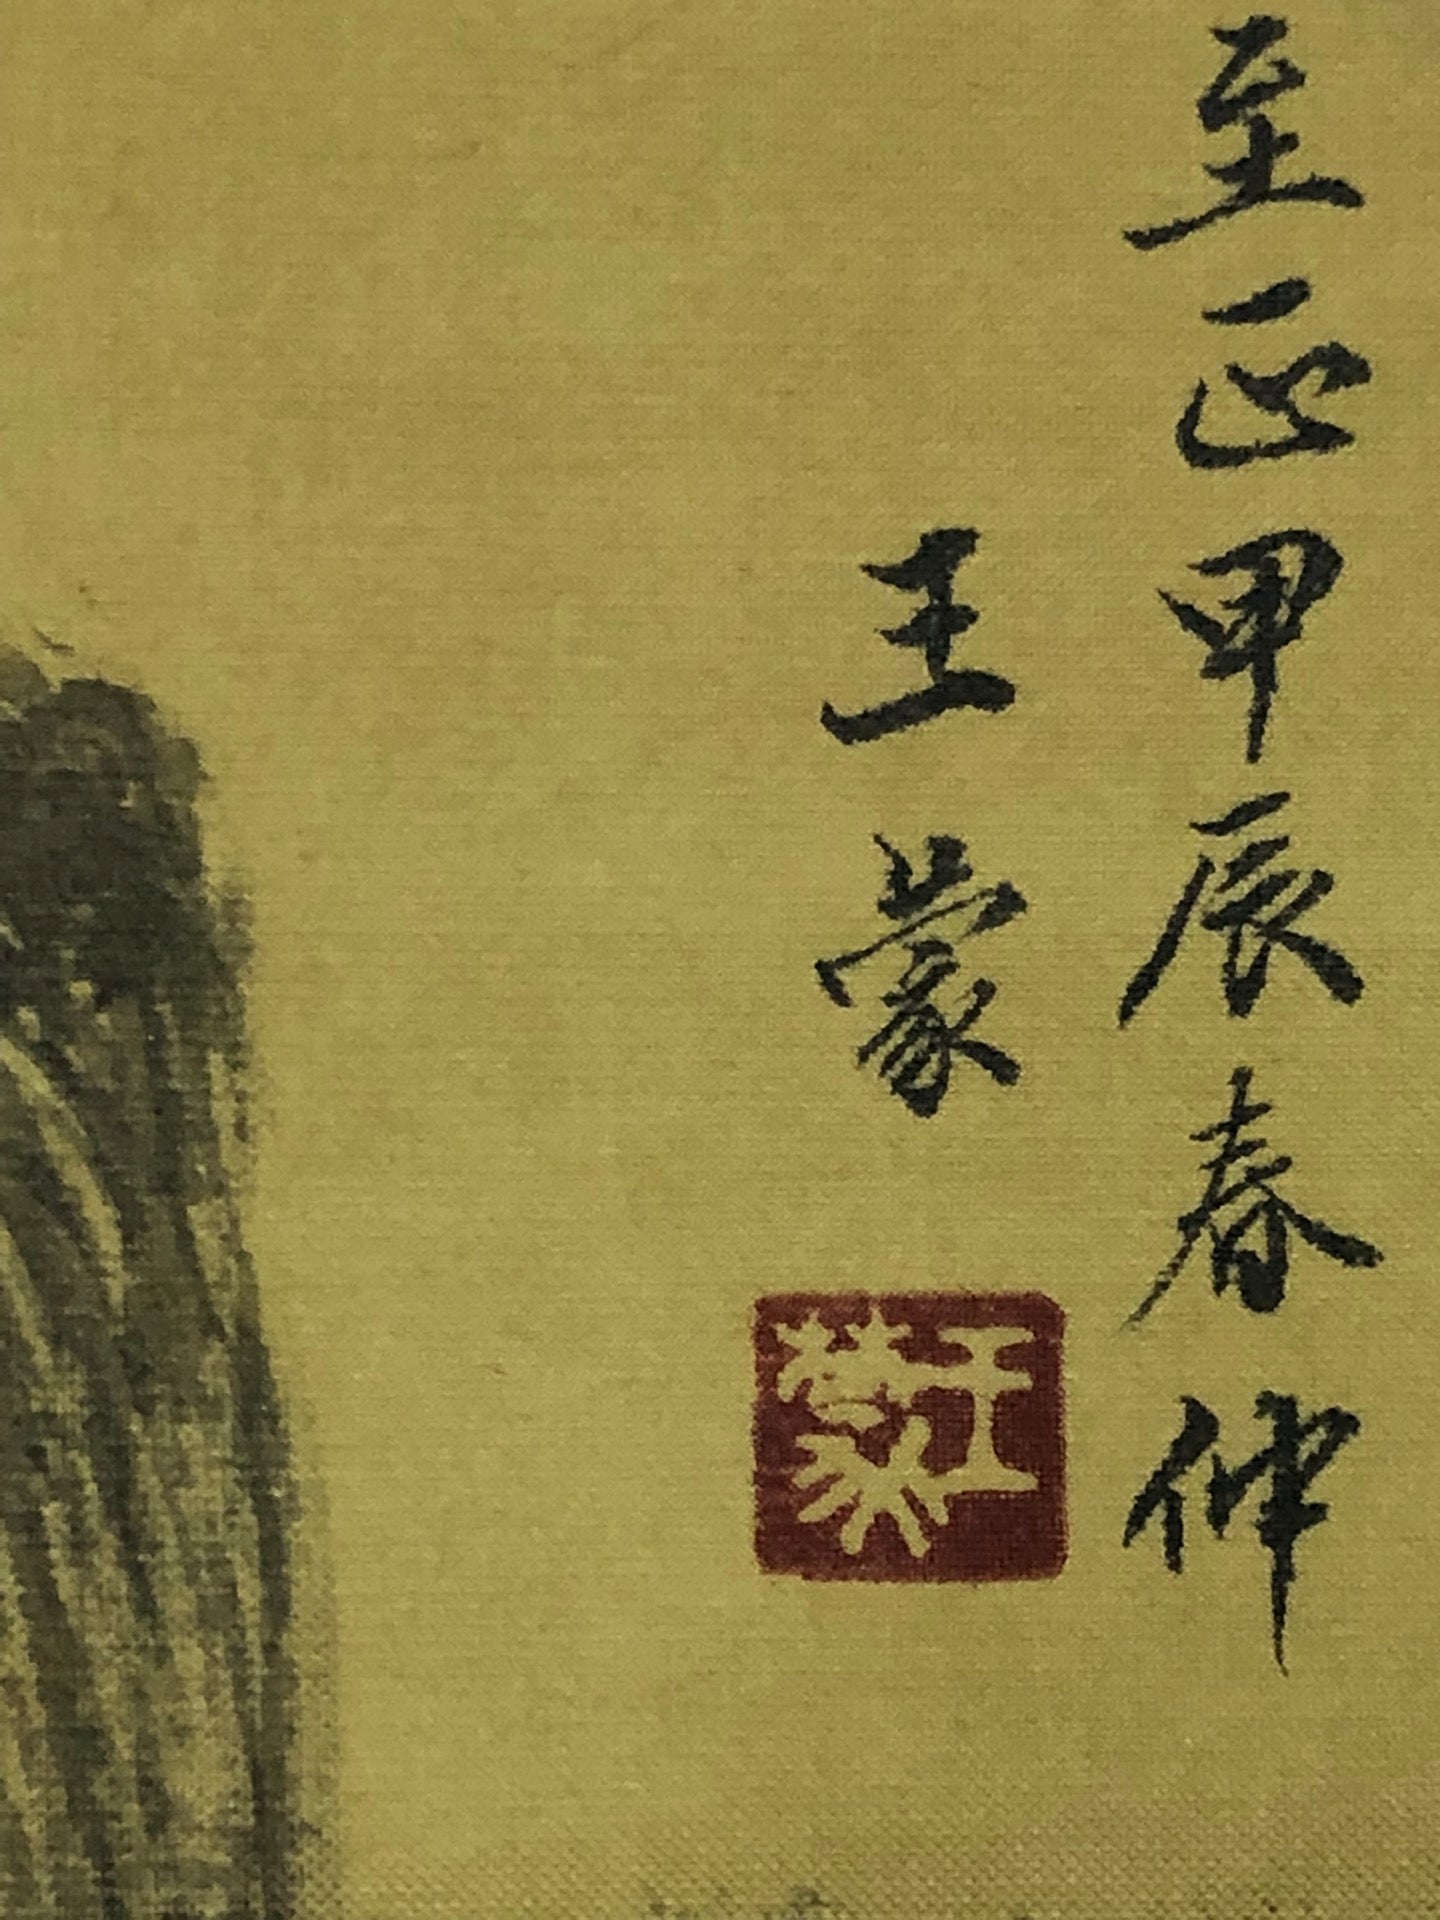 至正甲辰春仲
王蒙
王蒙